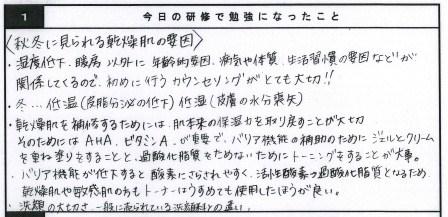 1 今日の研修で勉強になったこと
〈秋冬に見られる乾燥肌の要因〉
・湿度低下、暖房以外に年齢的要因、病気や体質、生活習慣の要因などが
関係してくるので、初めに行うカウンセリングがとても大切!!
・冬…低温(皮脂分泌の低下)低湿(皮膚の水分喪失)
・乾燥肌を補修するためには、肌本来の保湿力を取り戻すことが大切
そのためには AHA、ビタミンA、が重要で、バリア機能の補助のためにジェルとクリーム
を重ね塗りをすることと、過酸化脂質をためないためにトーニングをすることが大事。
・バリア機能が低下すると酸素にさらされやすく、活性酸素→過酸化脂質となるため、
乾燥肌や敏感肌のもトーナーはうすめでも使用したほうが良い。
・洗顔の大切さ 一般に売られている洗顔料との違い。